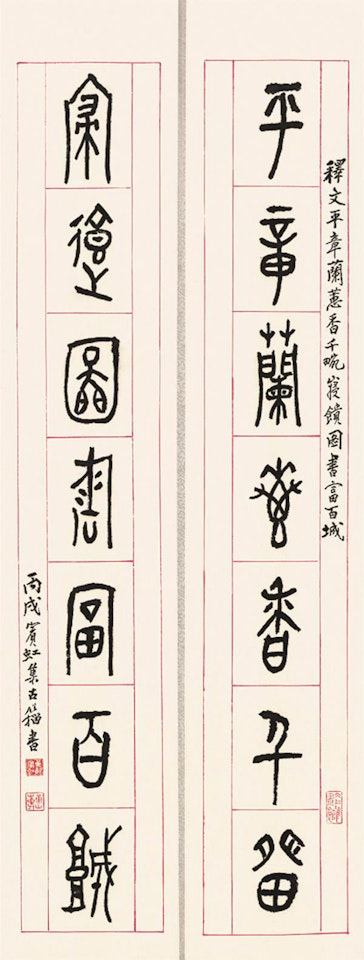 釋文平章蘭蕙香千畹寢饋图書富百城
平章蘭蕙香千畹
寢饋圖書富百城
丙戌賓虹集古籀書